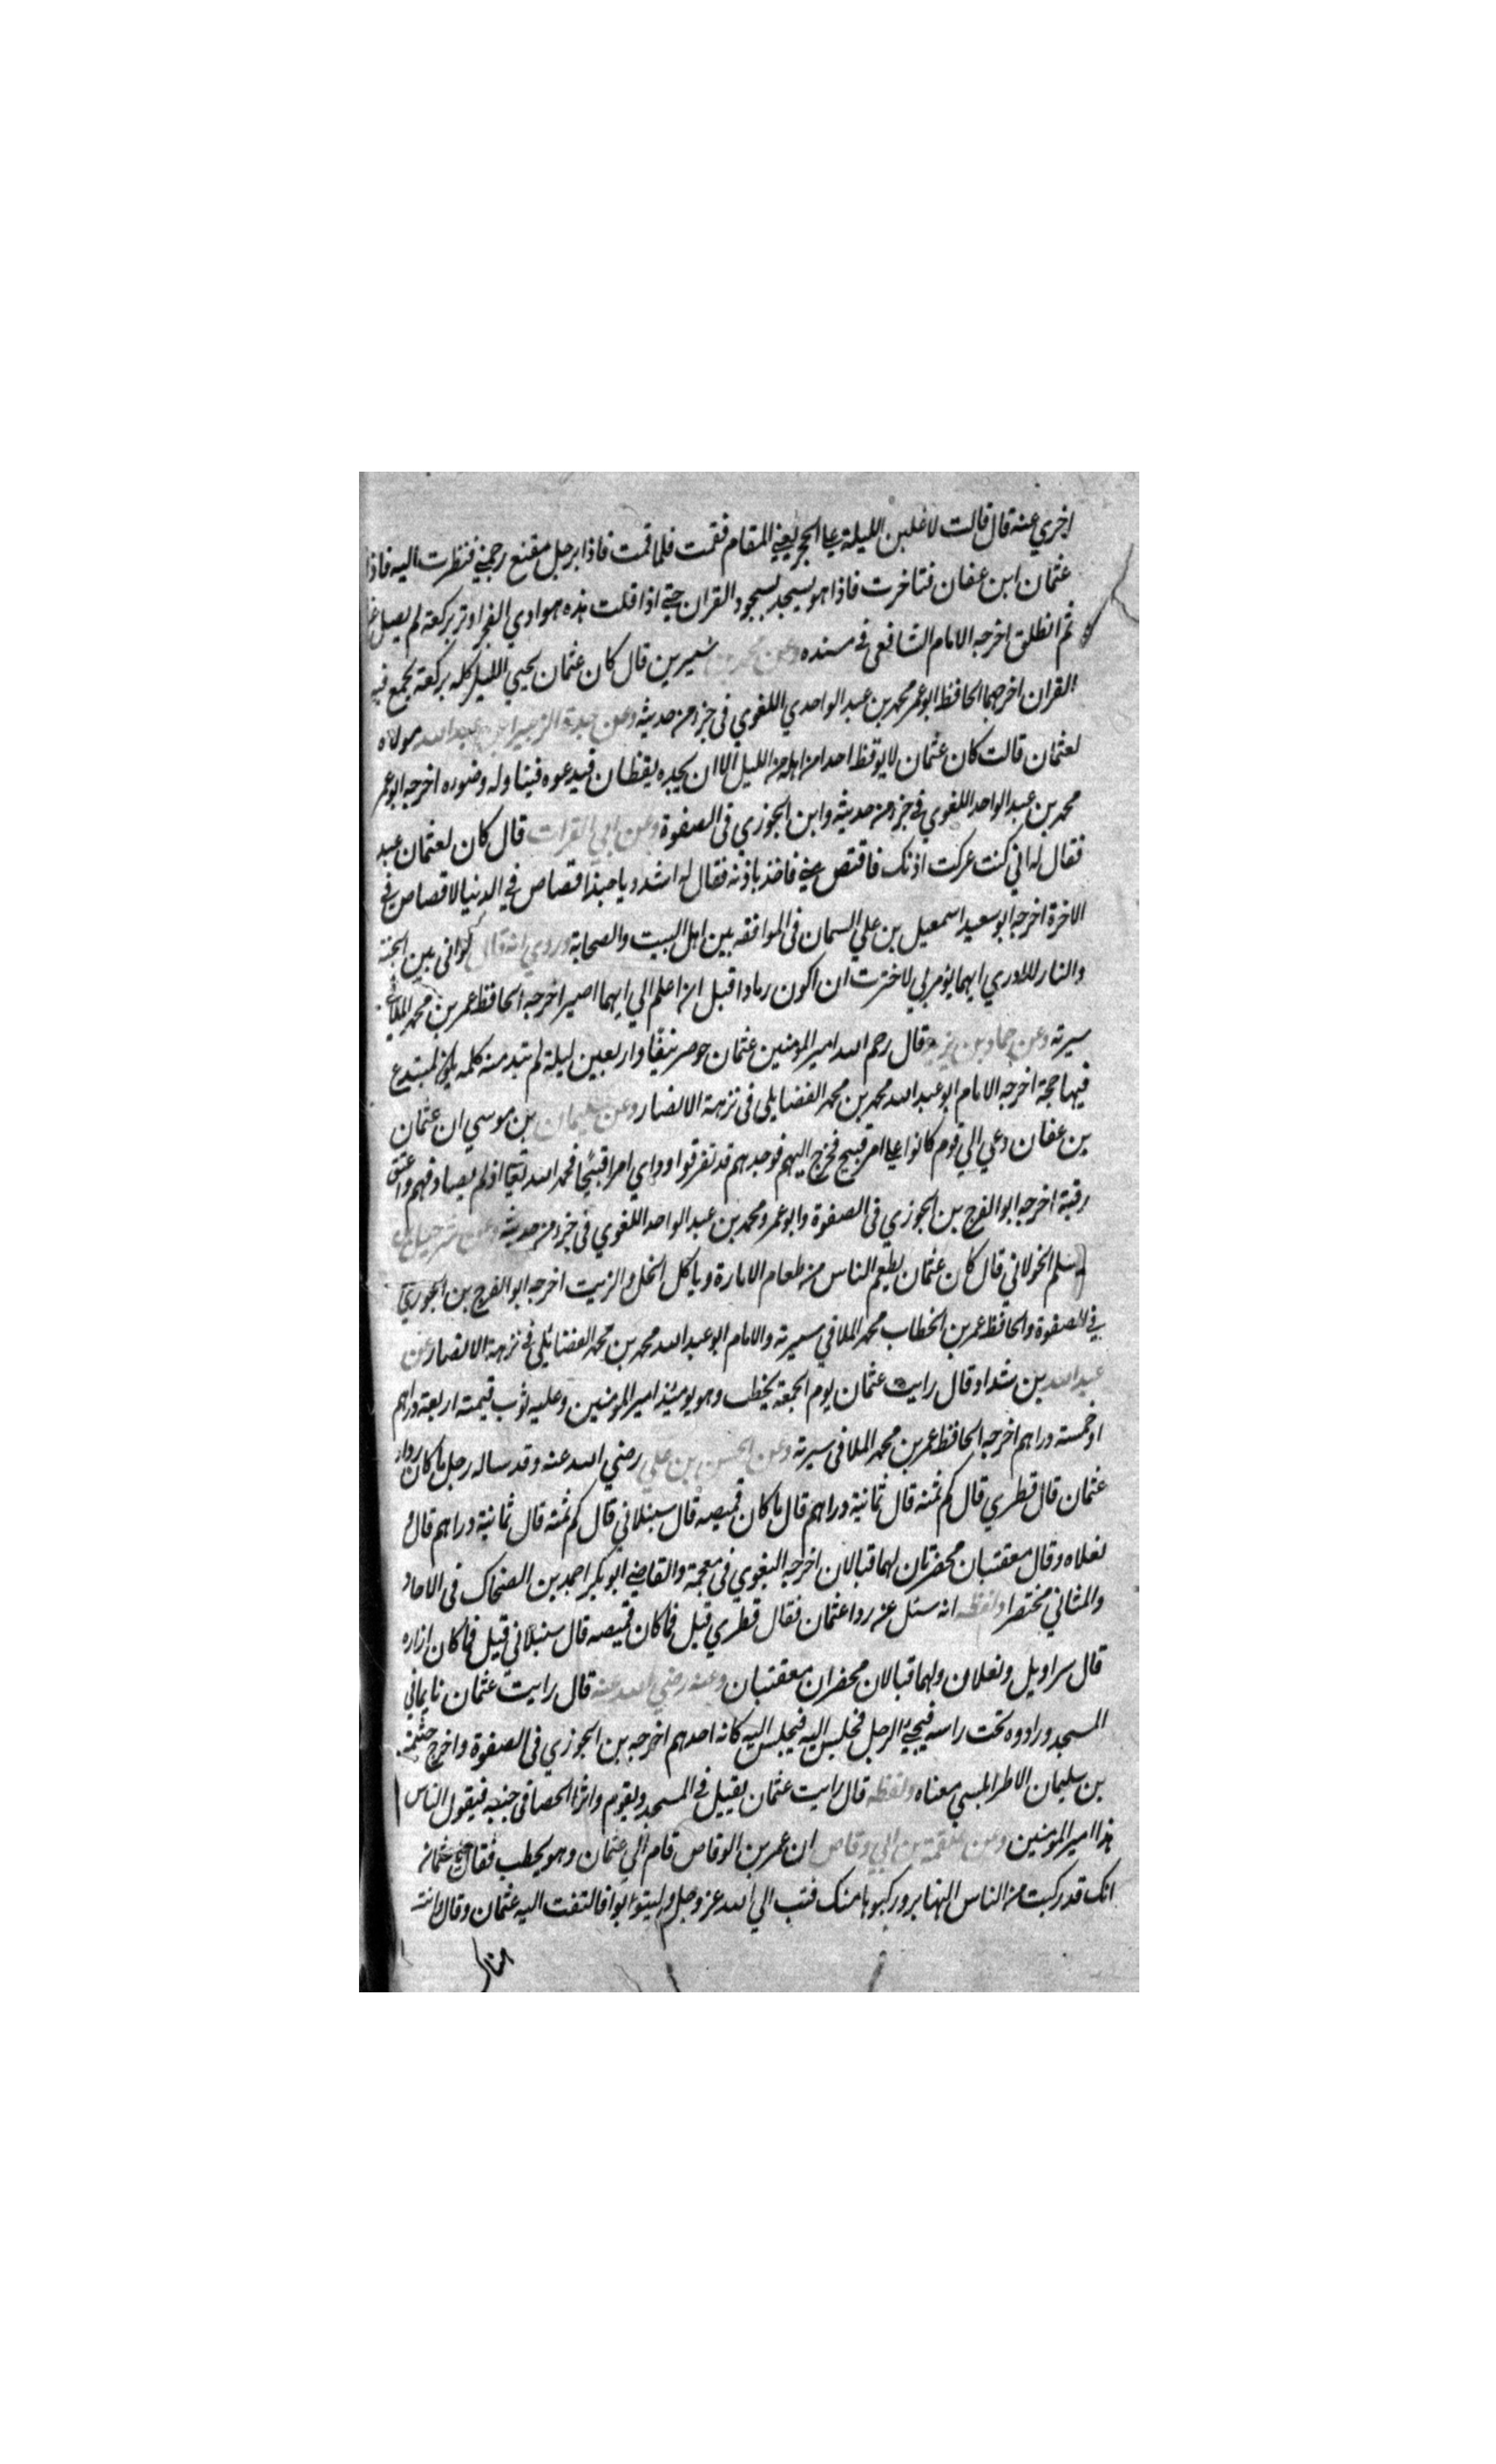 اخري عنه قال قالت لاغلبن الليلة علي الحجر يعني المقام فقمت فلما قمت فاذا برجل مقنع رجمني فنظرت اليه فاذا
عثمان ابن عفان فتاخرت فاذا هو يسجد سجود القران حتي اذا قلت هذه هوادي الفجر اوتر بركعة لم يصل
ثم انطلق اخرجه الامام الشافعي في مسنده وعن محمد بن سيرين قال كان عثمان يحيي الليل كله بركعة يجمع فيه
القران اخرجهما الحافظ ابو عمر محمد بن عبد الواحدي اللغوي في جزء من حديثه وعن جدة الزبير بن عبد الله مولاه
لعثمان قالت كان عثمان لا يوقظ احدا من اهله من الليل الا ان يجده يقظان فيدعوه فيناوله وضوءه اخرجه ابو عمر
محمد بن عبد الواحد اللغوي في جزء من حديثه وابن الجوزي في الصفوة وعن ابي الفرات قال كان لعثمان عبد
فقال له اني كنت عركت اذنك فاقتص مني فاخذ باذنه فقال له اشدد يا حبذا قصاص في الدنيا لا قصاص في
الاخرة اخرجه ابو سعيد اسمعيل بن علي السمان في الموافقه بين اهل البيت والصحابة وروي انه قال لو اني بين الجنة
والنار لا ادري ايهما يؤمر بي لاخترت ان اكون رمادا قبل ان اعلم الي ايهما اصير اخرجه الحافظ عمر بن محمد الملا في
سيرته وعن حماد بن زيد قال رحم الله امير المومنين عثمان حوصر نيفا واربعين ليلة لم تبد منه كلمه يكون لمبتدع
فيها حجة اخرجه الامام ابو عبد الله محمد بن محمد الفضايلي في نزهة الابصار وعن سليمان بن موسي ان عثمان
بن عفان دعي الي قوم كانوا علي امر قبيح فخرج اليهم فوجدهم قد تفرقوا وراي امرا قبيحا فحمد الله تعالي اذ لم يصادفهم واعتق
رقبة اخرجه ابو الفرج بن الجوزي في الصفوة وابو عمرو محمد بن عبد الواحد اللغوي في جزء من حديثه وعن شرحبيل بن
مسلم الخولاني قال كان عثمان يطعم الناس من طعام الامارة وياكل الخل والزيت اخرجه ابو الفرج بن الجوزي
في الصفوة والحافظ عمر بن الخطاب محمد الملا في سيرته والامام ابو عبد الله محمد بن محمد الفضائلي في نزهة الابصار عن
عبد الله بن شداد قال رايت عثمان يوم الجمعة يخطب وهو يومئذ امير المومنين وعليه ثوب قيمته اربعة دراهم
او خمسة دراهم اخرجه الحافظ عمر بن محمد الملا في سيرته وعن الحسن بن علي رضي الله عنه وقد ساله رجل ما كان رداء
عثمان قال قطري قال كم ثمنه قال ثمانية دراهم قال ما كان قميصه قال سنبلاني قال كم ثمنه قال ثمانية دراهم قال
نعلاه وقال معقبتان مخصرتان لهما قبالان اخرجه البغوي في معجمة والقاضي ابو بكر احمد بن الضحاك في الاحاد
والمثاني مختصرا ولفظه انه سئل عن ردا عثمان فقال قطري قيل فما كان قميصه قال سنبلاني قيل فما كان ازاره
قال سراويل ونعلان ولهما قبالان مخصران معقبتان وعنه رضي الله عنه قال رايت عثمان نايما في
المسجد وردءوه تحت راسه فيجيئ الرجل فيجلس اليه فيجلس اليه كانه احدهم اخرجه بن الجوزي في الصفوة واخرج خيثمة
بن سليمان الاطرابلسي معناه ولفظه قال رايت عثمان يقيل في المسجد ويقوم واثر الحصا في جنبه فيقول الناس
هذا امير المومنين وعن علقمة بن ابي وقاص ان عمر بن الوقاص قام الي عثمان وهو يخطب فقال يا عثمان
انك قد ركبت من الناس النهابر وركبوها منك فتب الي الله عز وجل وليتوبوا فالتفت اليه عثمان وقال وانت